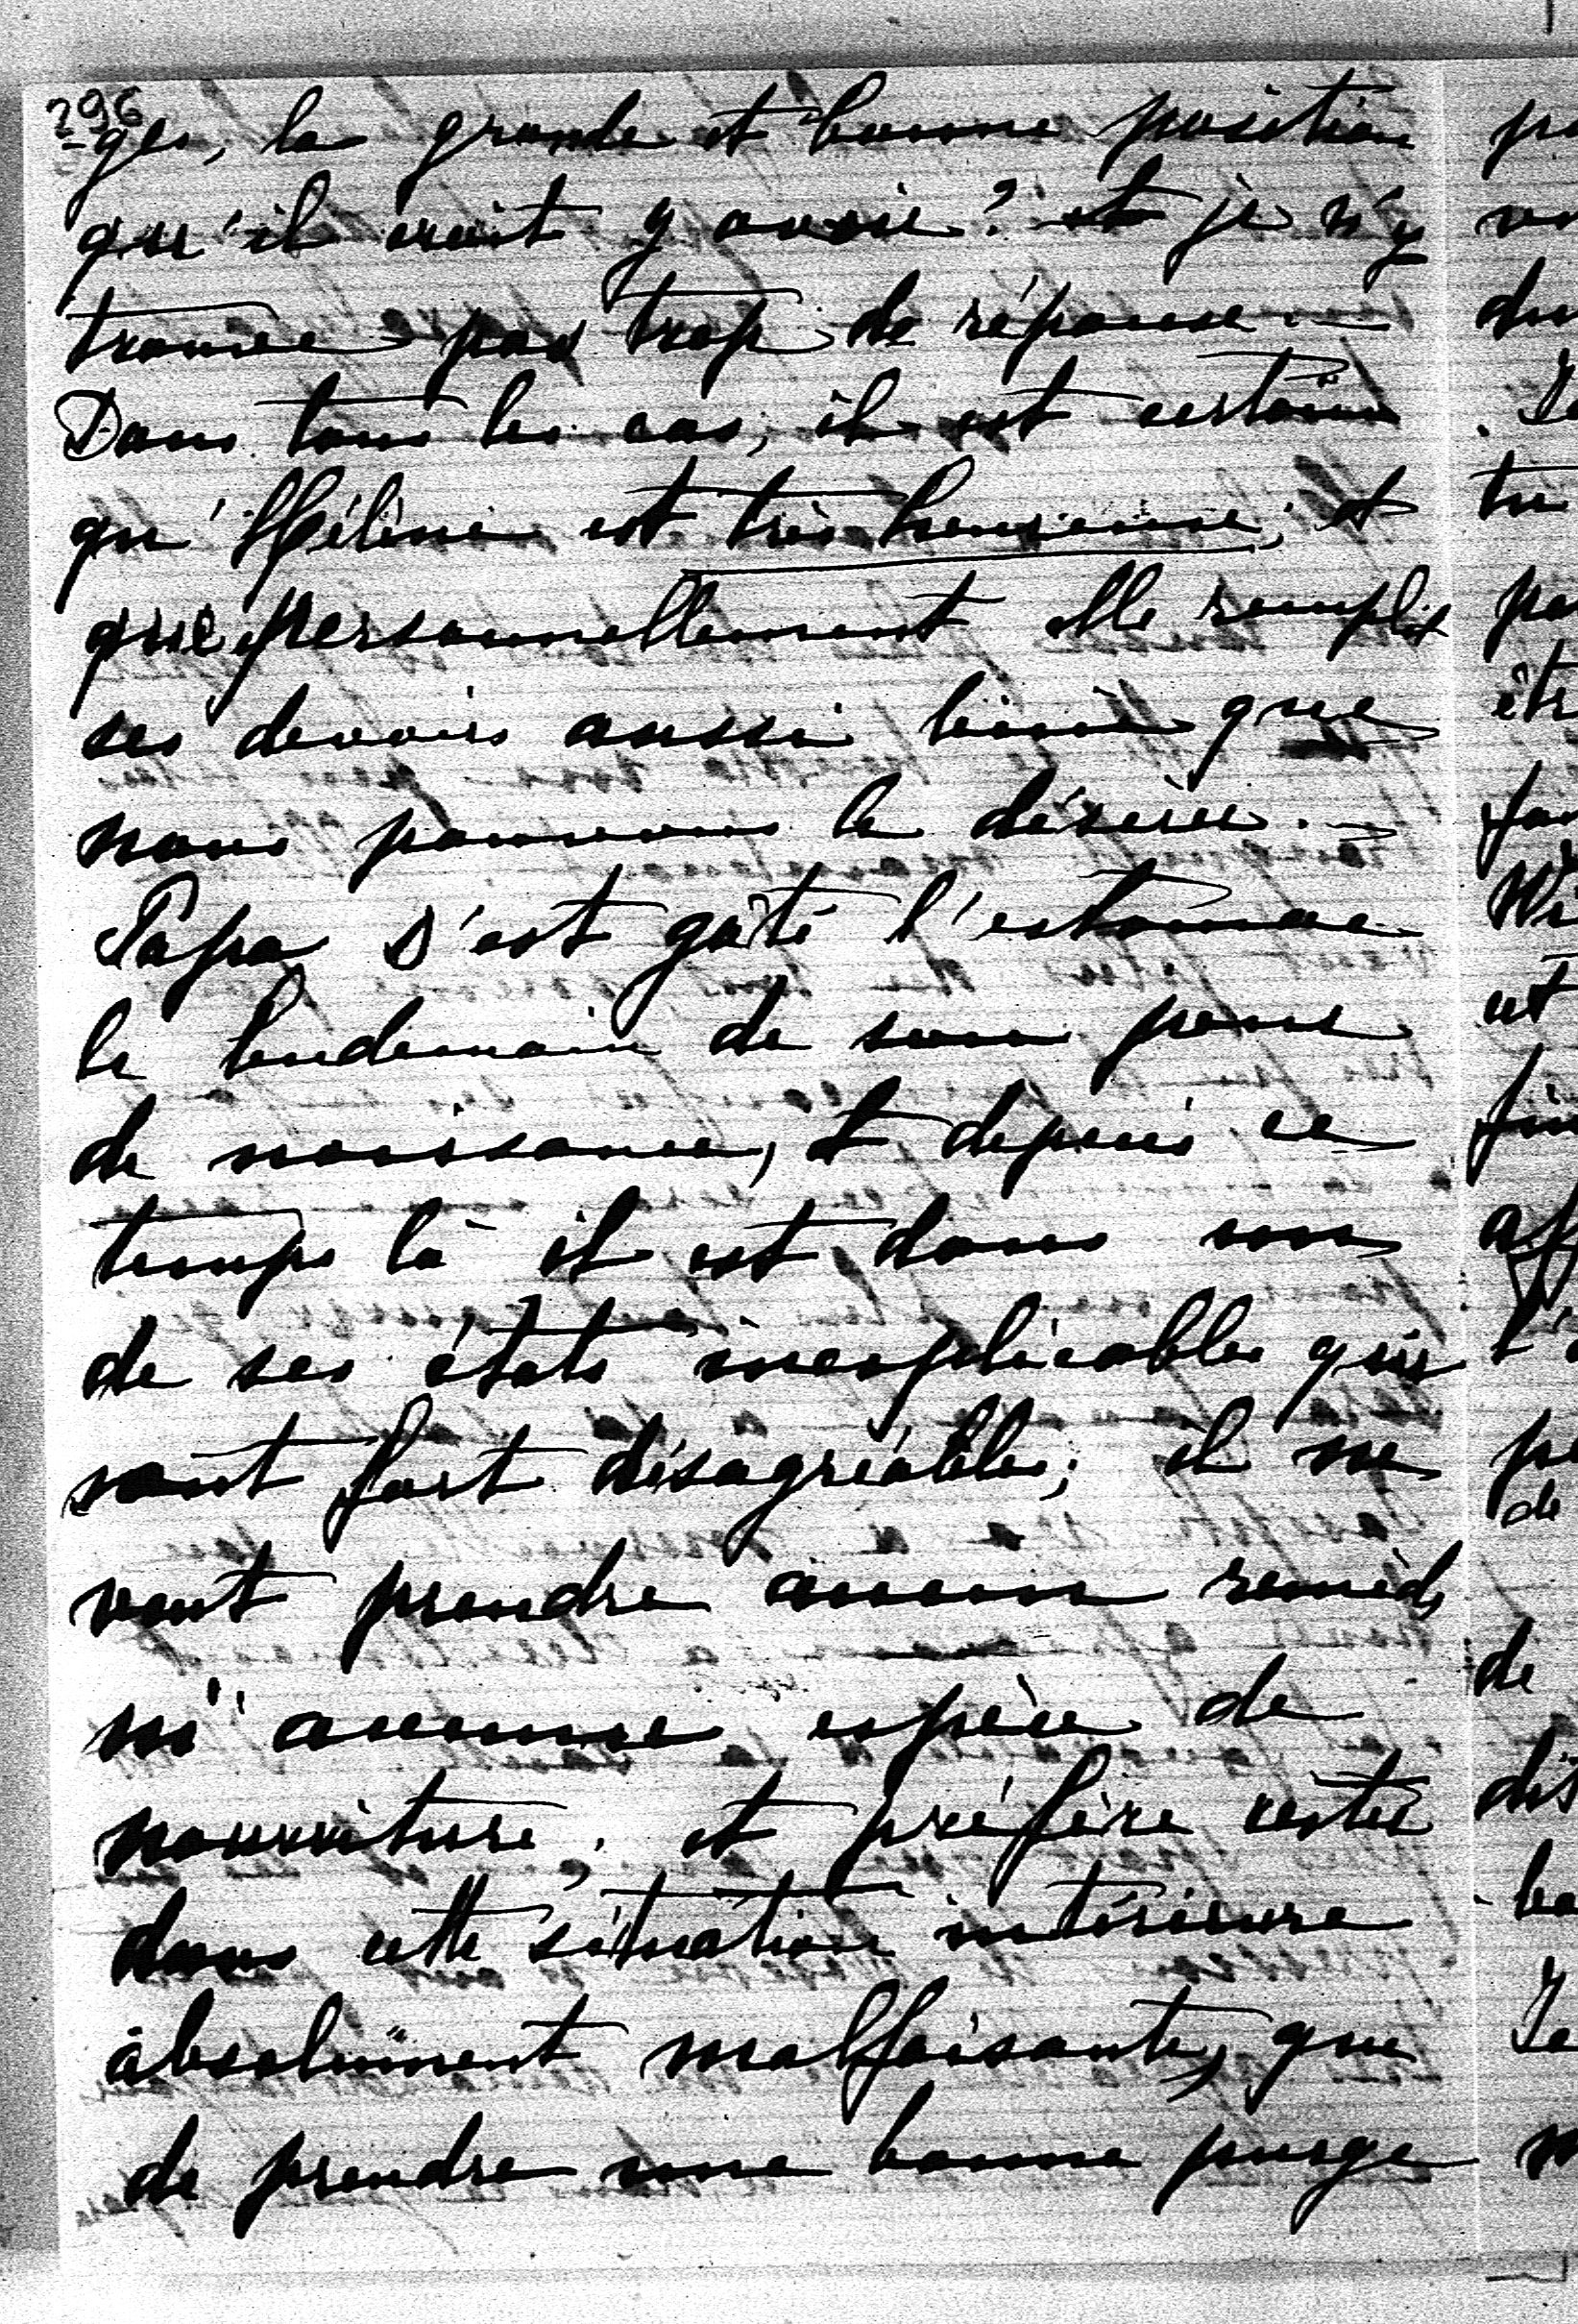 296
-ges, la grande et bonne position
qu'il croit y avoir? et je n'y
trouve pas trop de réponse. —
Dans tous les cas, il est certain
qu'Hélène est très heureuse; et
que personnellement elle remplit
ses devoirs aussi bien que
nous pouvons le désirer. —
Papa s'est gâté l'estomac
le lendemain de son jour
de naissance, et depuis ce
temps là il est dans un
de ses états inexplicables qui
sont fort désagréables; il ne
veut prendre aucun remède
ni aucune espèce de
nourriture. et préfère rester
dans cette situation intérieure
absolument malfaisante, que
de prendre une bonne purge